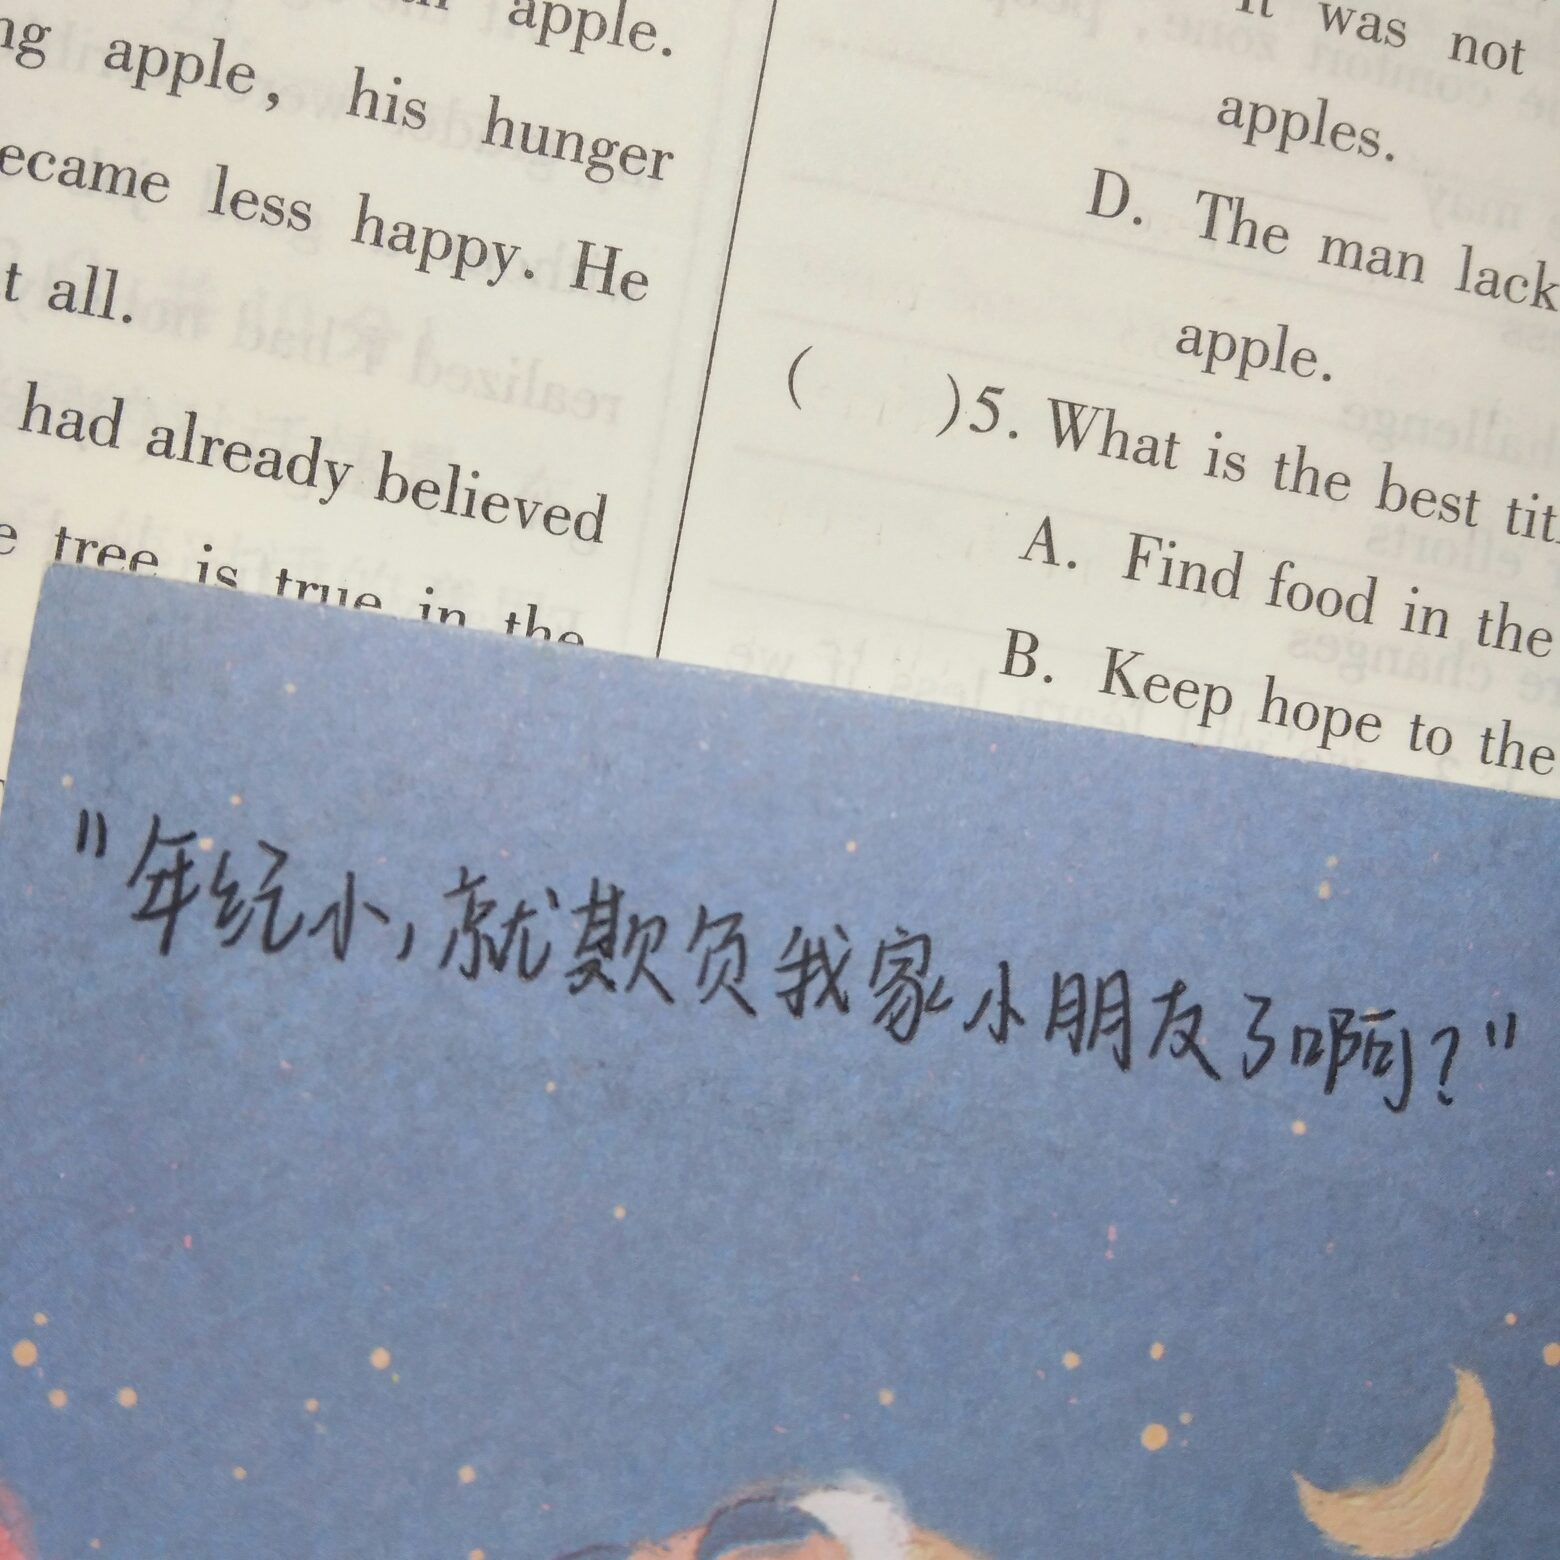 apple.
ng apple, his hunger
ecame less happy. He
t all.
had already believed
e tree is true in the
It was not
apples.
D. The man lack
apple.
( )5. What is the best tit
A. Find food in the
B. Keep hope to the
"年纪小,就欺负我家小朋友了啊?"